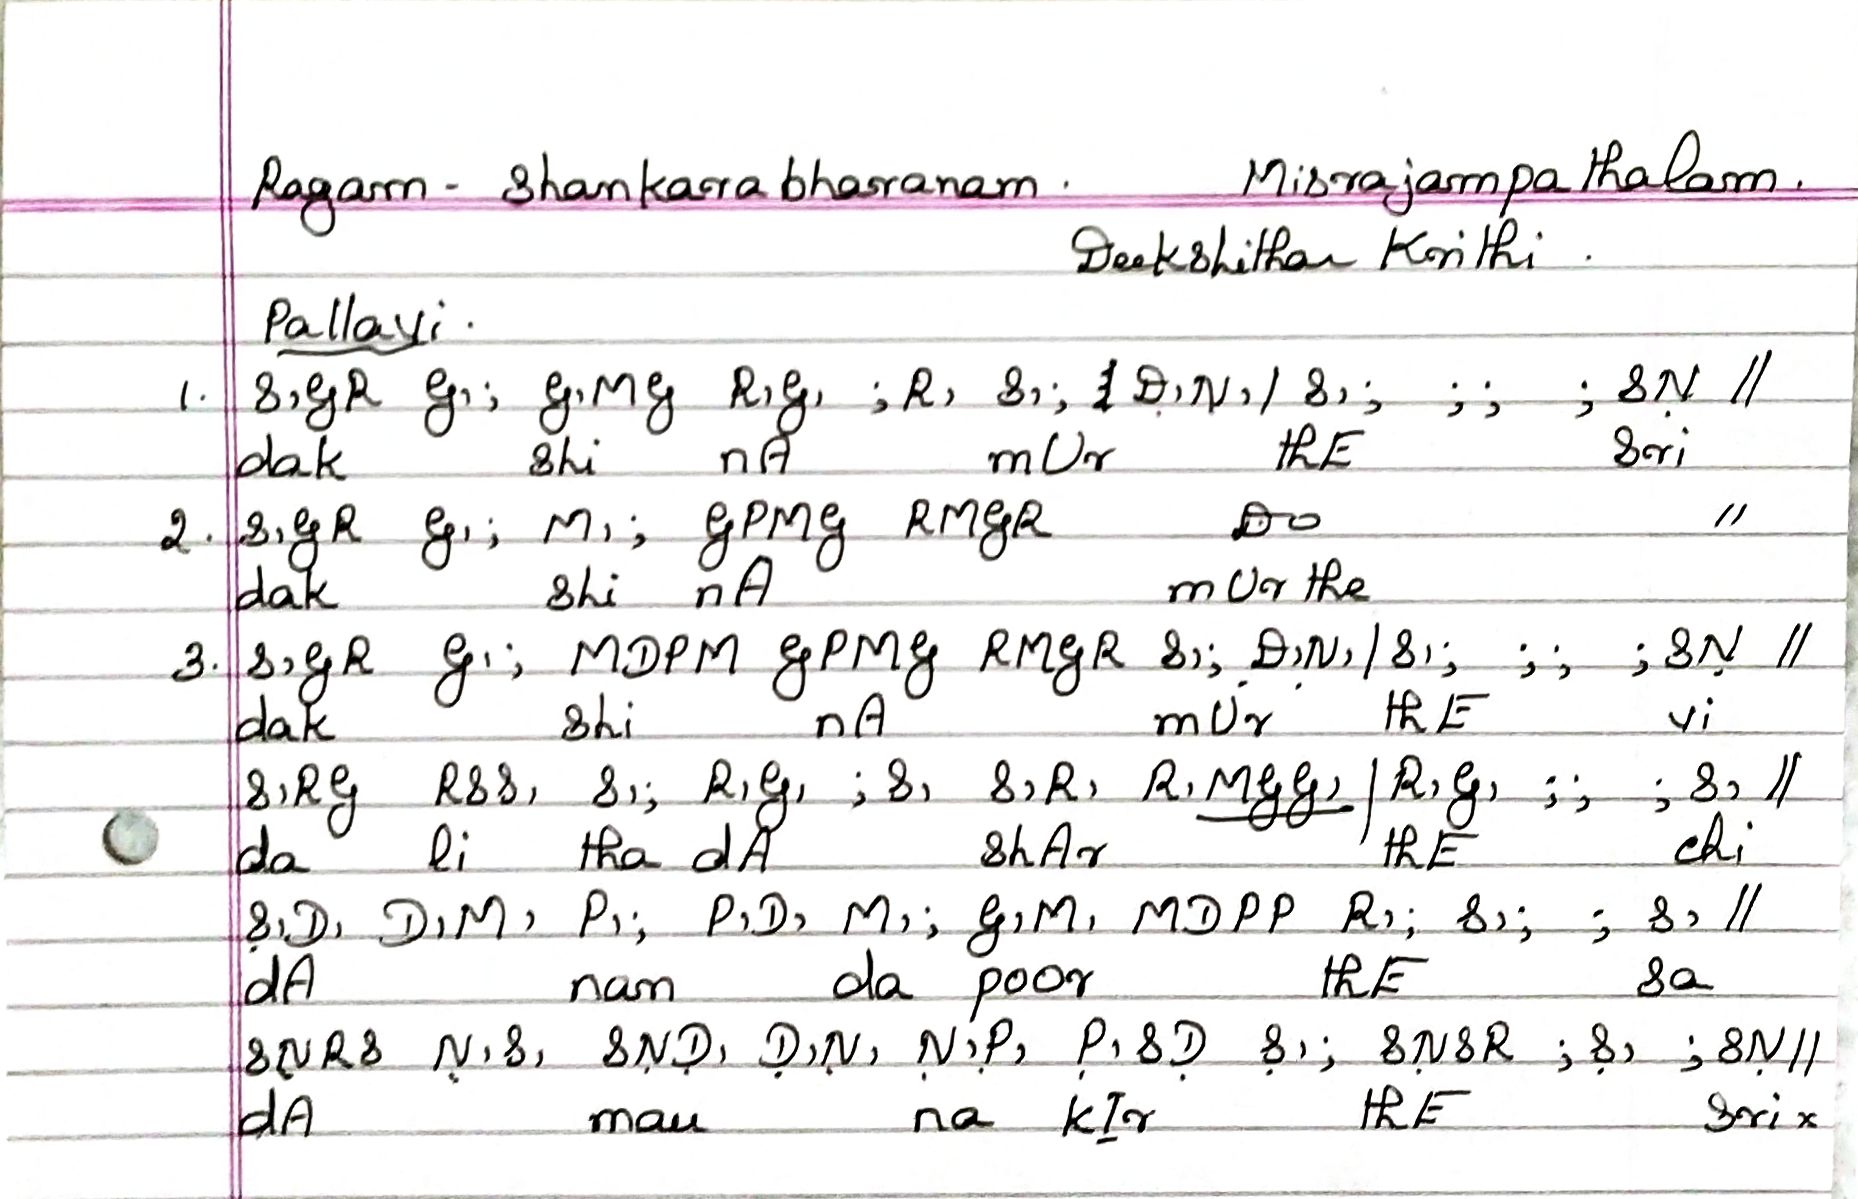 Ragam - Shankarabharanam. Misrajampa thalam.
Deekshithar Krithi.
Pallavi.
1. S,GR G,; G,MG R,G, ;R, S,; Ḍ,Ṇ,/ S,; ;; ; SṆ //
dak shi nA mUr thE Sri
2. S,GR G,; M,; GPMG RMGR Do "
dak shi nA mUr the
3. S,GR G,; MDPM GPMG RMGR S,; Ḍ,Ṇ,/S,; ;; ;SṆ //
dak shi nA mUr thE vi
S,RG RSS, S,; R,G, ;S, S,R, R,MGG, / R,G, ;; ;S, //
da li tha dA shAr thE chi
Ṣ,D, D,M, P,; P,D, M,; G,M, MDPP R,; S,; ; S, //
dA nan da poor thE sa
SṆRS Ṇ,S, SṆḌ, Ḍ,Ṇ, Ṇ,P̣, P̣,SḌ Ṣ,; SṆSR ;S, ;SṆ//
dA mau na kIr thE Sri x